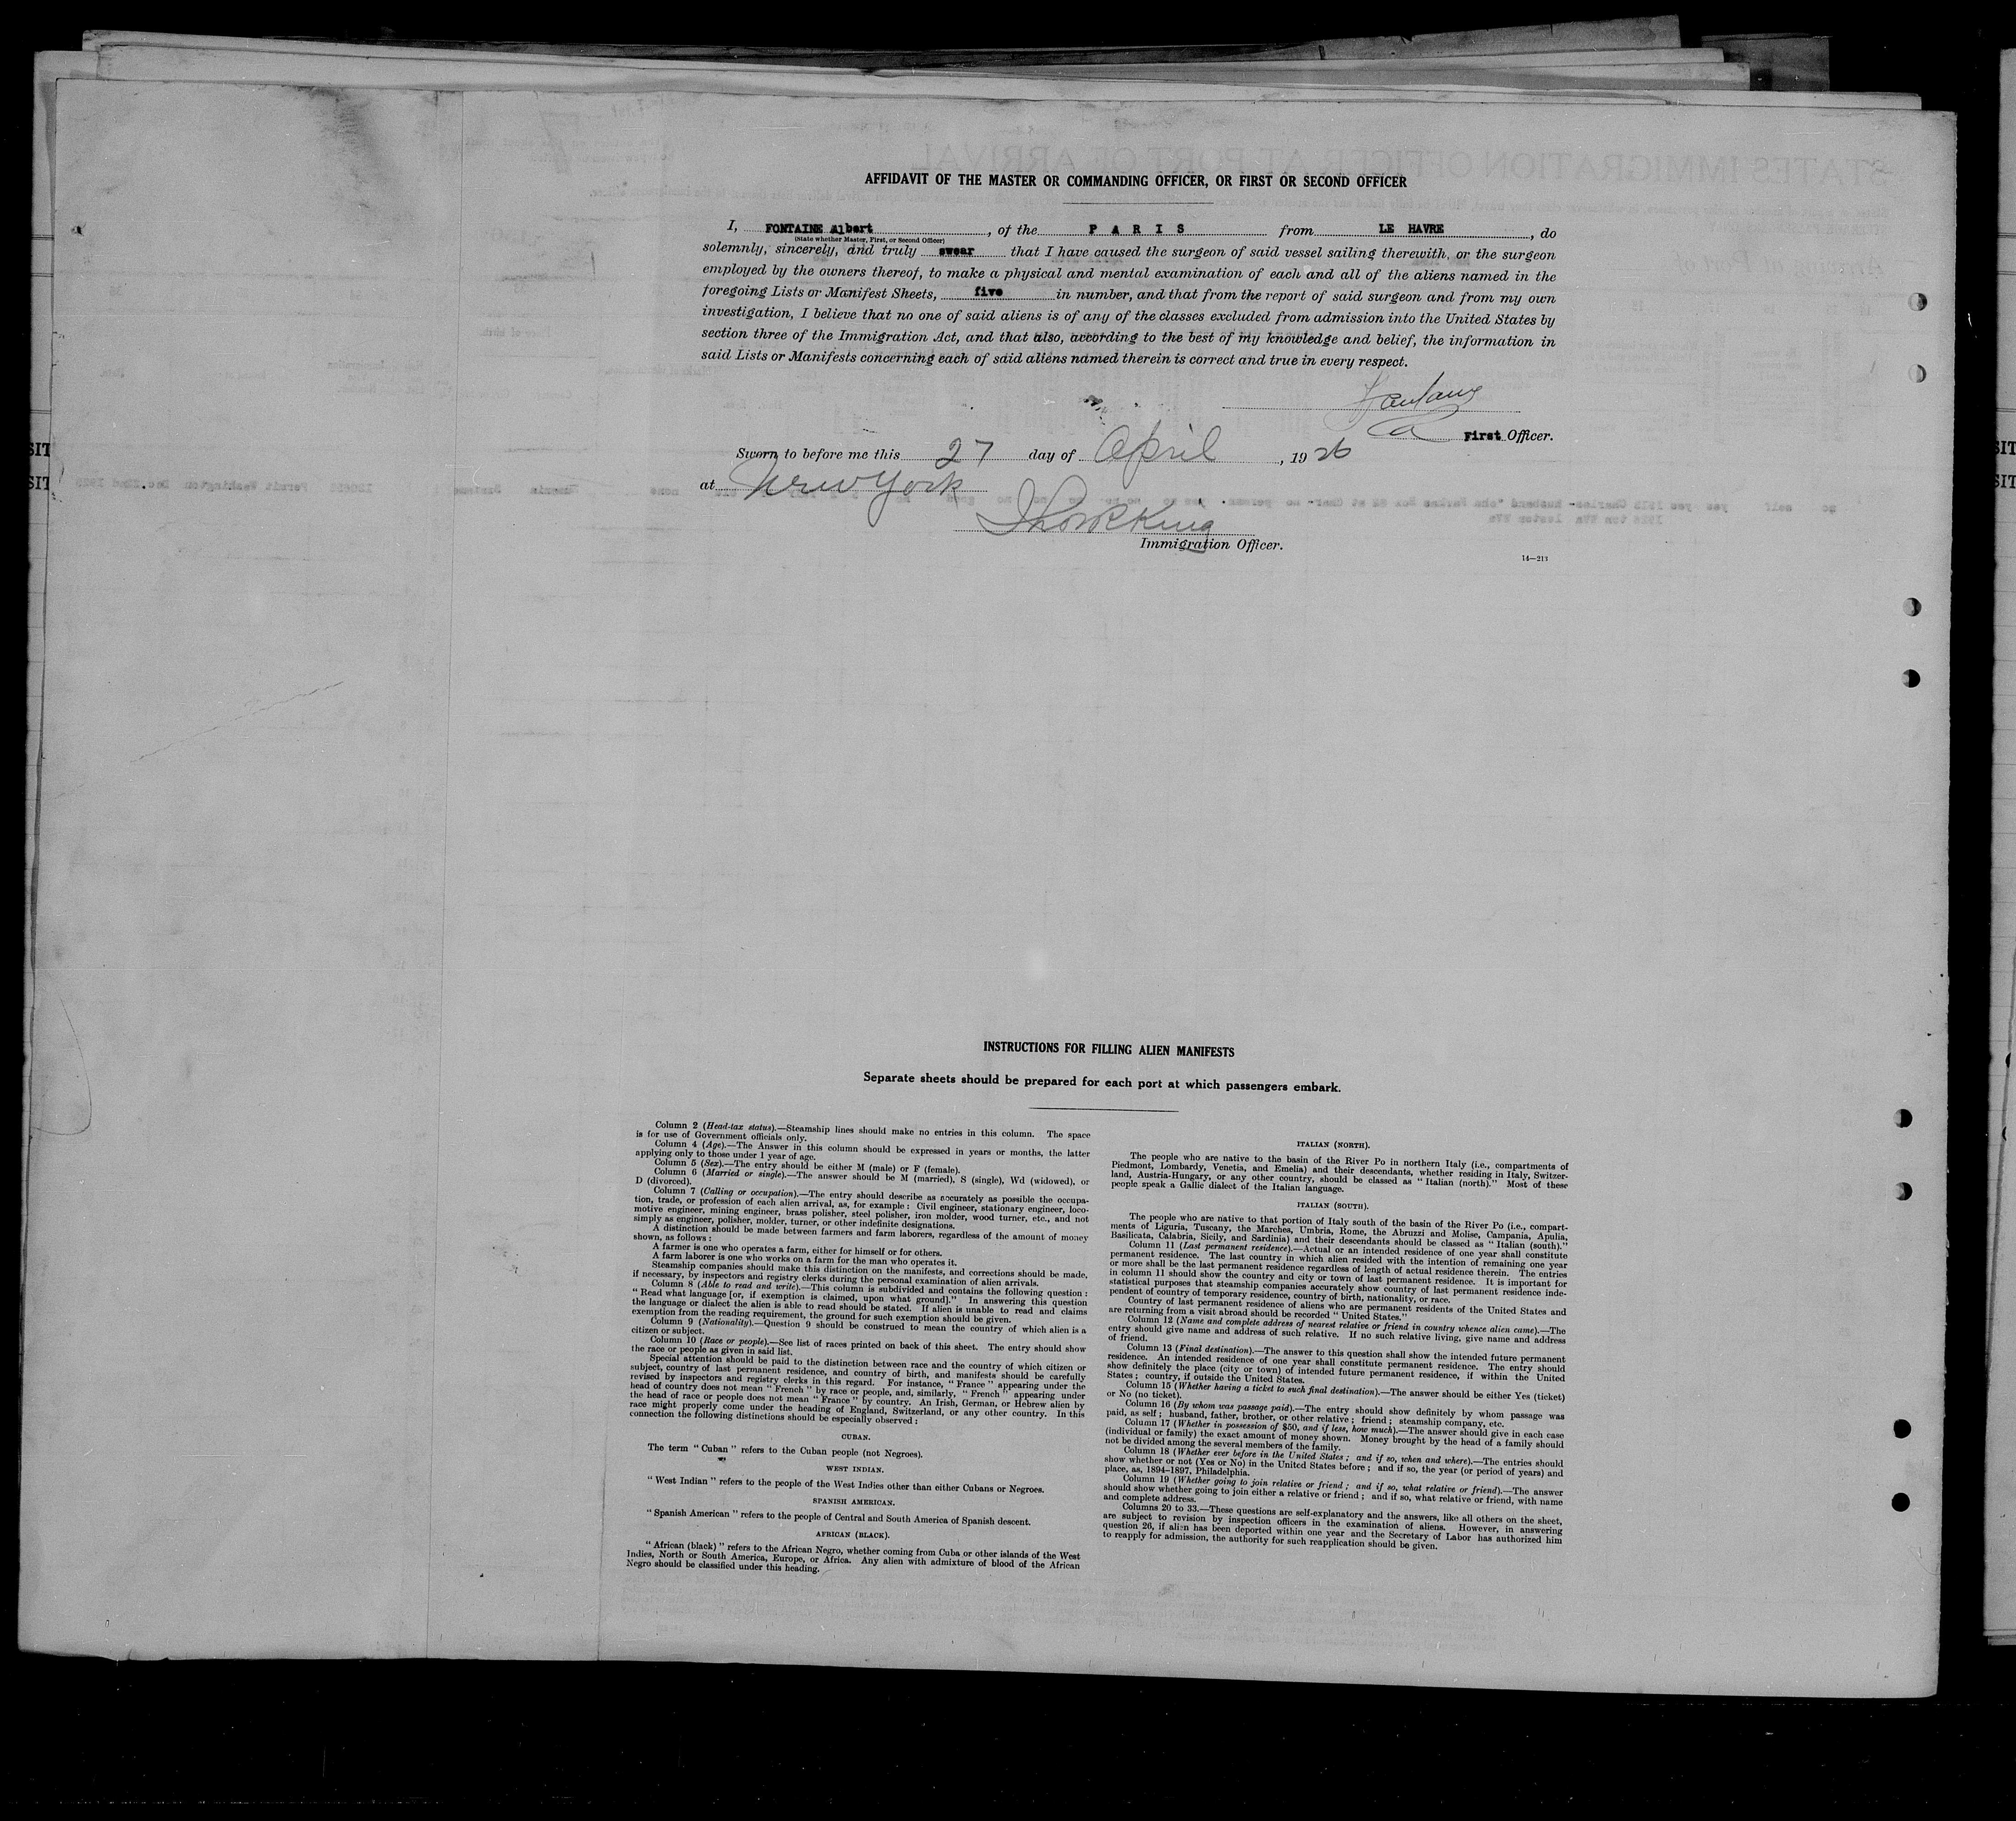 AFFIDAVIT OF THE MASTER OR COMMANDING OFFICER, OR FIRST OR SECOND OFFICER
I, FONTAINE Albert, of the P A R I S from LE HAVRE, do
(State whether Master, First, or Second Officer)
solemnly, sincerely, and truly swear that I have caused the surgeon of said vessel sailing therewith, or the surgeon
employed by the owners thereof, to make a physical and mental examination of each and all of the aliens named in the
foregoing Lists or Manifest Sheets, five in number, and that from the report of said surgeon and from my own
investigation, I believe that no one of said aliens is of any of the classes excluded from admission into the United States by
section three of the Immigration Act, and that also, according to the best of my knowledge and belief, the information in
said Lists or Manifests concerning each of said aliens named therein is correct and true in every respect.
First Officer.
Sworn to before me this 27 day of April, 1926
at New York
Immigration Officer.
14—213
INSTRUCTIONS FOR FILLING ALIEN MANIFESTS
Separate sheets should be prepared for each port at which passengers embark.
Column 2 (Head-tax status).—Steamship lines should make no entries in this column. The space
is for use of Government officials only.
Column 4 (Age).—The Answer in this column should be expressed in years or months, the latter
applying only to those under 1 year of age.
Column 5 (Sex).—The entry should be either M (male) or F (female).
Column 6 (Married or single).—The answer should be M (married), S (single), Wd (widowed), or
D (divorced).
Column 7 (Calling or occupation).—The entry should describe as accurately as possible the occupa-
tion, trade, or profession of each alien arrival, as, for example: Civil engineer, stationary engineer, loco-
motive engineer, mining engineer, brass polisher, steel polisher, iron molder, wood turner, etc., and not
simply as engineer, polisher, molder, turner, or other indefinite designations.
A distinction should be made between farmers and farm laborers, regardless of the amount of money
shown, as follows:
A farmer is one who operates a farm, either for himself or for others.
A farm laborer is one who works on a farm for the man who operates it.
Steamship companies should make this distinction on the manifests, and corrections should be made,
if necessary, by inspectors and registry clerks during the personal examination of alien arrivals.
Column 8 (Able to read and write).—This column is subdivided and contains the following question:
"Read what language [or, if exemption is claimed, upon what ground]." In answering this question
the language or dialect the alien is able to read should be stated. If alien is unable to read and claims
exemption from the reading requirement, the ground for such exemption should be given.
Column 9 (Nationality).—Question 9 should be construed to mean the country of which alien is a
citizen or subject.
Column 10 (Race or people).—See list of races printed on back of this sheet. The entry should show
the race or people as given in said list.
Special attention should be paid to the distinction between race and the country of which citizen or
subject, country of last permanent residence, and country of birth, and manifests should be carefully
revised by inspectors and registry clerks in this regard. For instance, "France" appearing under the
head of country does not mean "French" by race or people, and, similarly, "French" appearing under
the head of race or people does not mean "France" by country. An Irish, German, or Hebrew alien by
race might properly come under the heading of England, Switzerland, or any other country. In this
connection the following distinctions should be especially observed:
CUBAN.
The term "Cuban" refers to the Cuban people (not Negroes).
WEST INDIAN.
"West Indian" refers to the people of the West Indies other than either Cubans or Negroes.
SPANISH AMERICAN.
"Spanish American" refers to the people of Central and South America of Spanish descent.
AFRICAN (BLACK).
"African (black)" refers to the African Negro, whether coming from Cuba or other islands of the West
Indies, North or South America, Europe, or Africa. Any alien with admixture of blood of the African
Negro should be classified under this heading.
ITALIAN (NORTH).
The people who are native to the basin of the River Po in northern Italy (i.e., compartments of
Piedmont, Lombardy, Venetia, and Emelia) and their descendants, whether residing in Italy, Switzer-
land, Austria-Hungary, or any other country, should be classed as "Italian (north)." Most of these
people speak a Gallic dialect of the Italian language.
ITALIAN (SOUTH).
The people who are native to that portion of Italy south of the basin of the River Po (i.e., compart-
ments of Liguria, Tuscany, the Marches, Umbria, Rome, the Abruzzi and Molise, Campania, Apulia,
Basilicata, Calabria, Sicily, and Sardinia) and their descendants should be classed as "Italian (south)."
Column 11 (Last permanent residence).—Actual or an intended residence of one year shall constitute
permanent residence. The last country in which alien resided with the intention of remaining one year
or more shall be the last permanent residence regardless of length of actual residence therein. The entries
in column 11 should show the country and city or town of last permanent residence. It is important for
statistical purposes that steamship companies accurately show country of last permanent residence inde-
pendent of country of temporary residence, country of birth, nationality, or race.
Country of last permanent residence of aliens who are permanent residents of the United States and
are returning from a visit abroad should be recorded "United States."
Column 12 (Name and complete address of nearest relative or friend in country whence alien came).—The
entry should give name and address of such relative. If no such relative living, give name and address
of friend.
Column 13 (Final destination).—The answer to this question shall show the intended future permanent
residence. An intended residence of one year shall constitute permanent residence. The entry should
show definitely the place (city or town) of intended future permanent residence, if within the United
States; country, if outside the United States.
Column 15 (Whether having a ticket to such final destination).—The answer should be either Yes (ticket)
or No (no ticket).
Column 16 (By whom was passage paid).—The entry should show definitely by whom passage was
paid, as self; husband, father, brother, or other relative; friend; steamship company, etc.
Column 17 (Whether in possession of $50, and if less, how much).—The answer should give in each case
(individual or family) the exact amount of money shown. Money brought by the head of a family should
not be divided among the several members of the family.
Column 18 (Whether ever before in the United States; and if so, when and where).—The entries should
show whether or not (Yes or No) in the United States before; and if so, the year (or period of years) and
place, as, 1894-1897, Philadelphia.
Column 19 (Whether going to join relative or friend; and if so, what relative or friend).—The answer
should show whether going to join either a relative or friend; and if so, what relative or friend, with name
and complete address.
Columns 20 to 33.—These questions are self-explanatory and the answers, like all others on the sheet,
are subject to revision by inspection officers in the examination of aliens. However, in answering
question 26, if alien has been deported within one year and the Secretary of Labor has authorized him
to reapply for admission, the authority for such reapplication should be given.